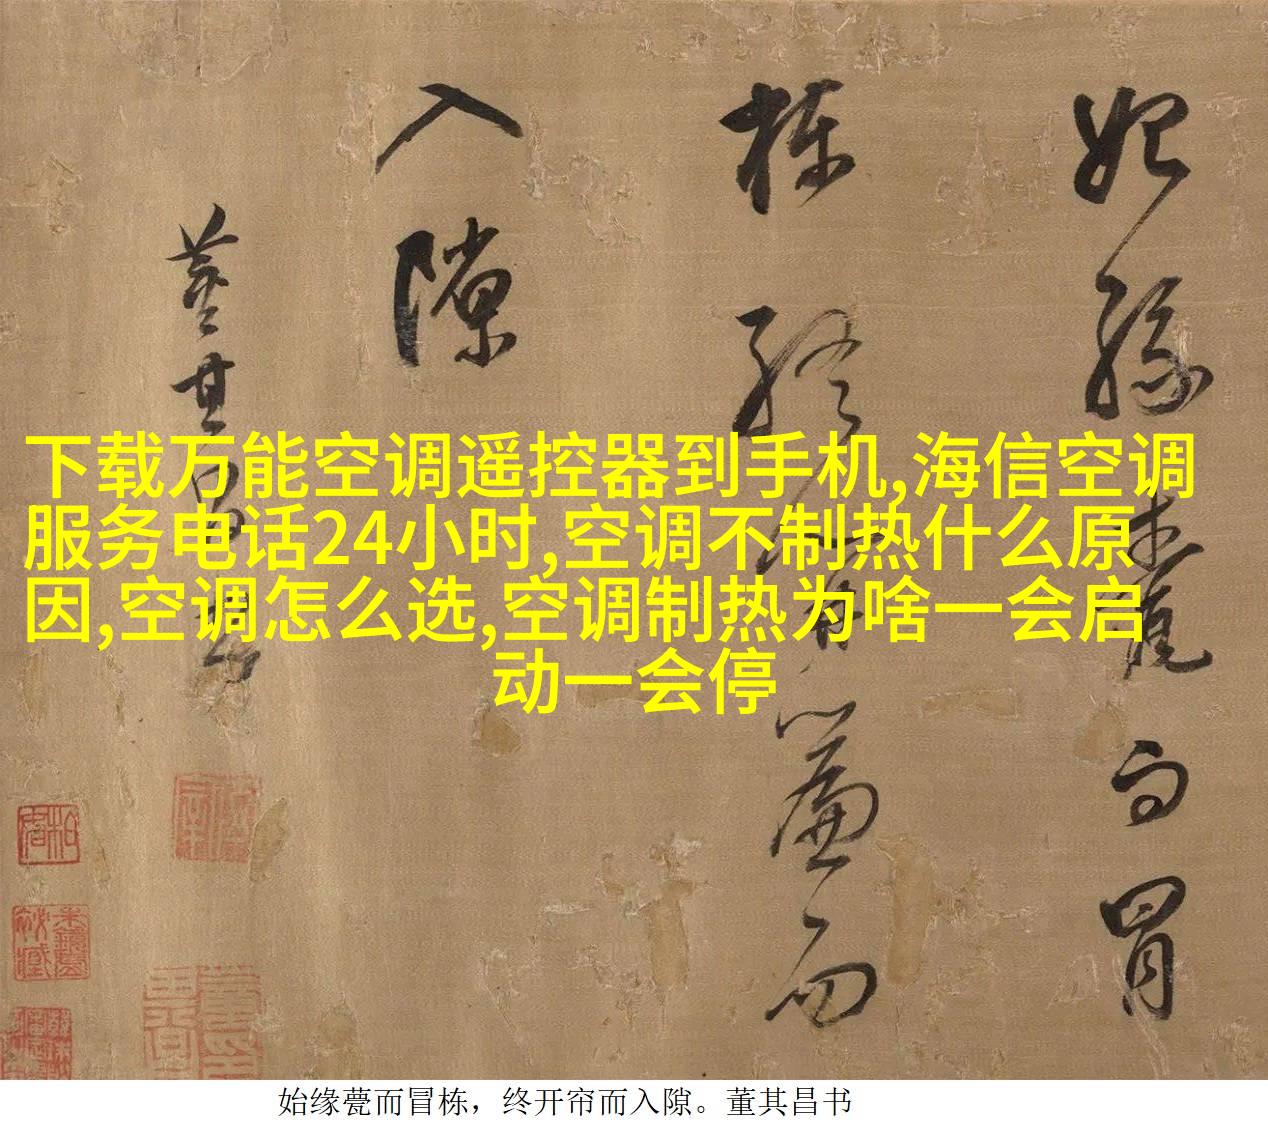 始緣甍而冒
棟終開簾而
入隙
董其昌書
下载万能空调遥控器到手机,海信空调
服务电话24小时,空调不制热什么原
因,空调怎么选,空调制热为啥一会启
动一会停
始缘甍而冒栋，终开帘而入隙。董其昌书